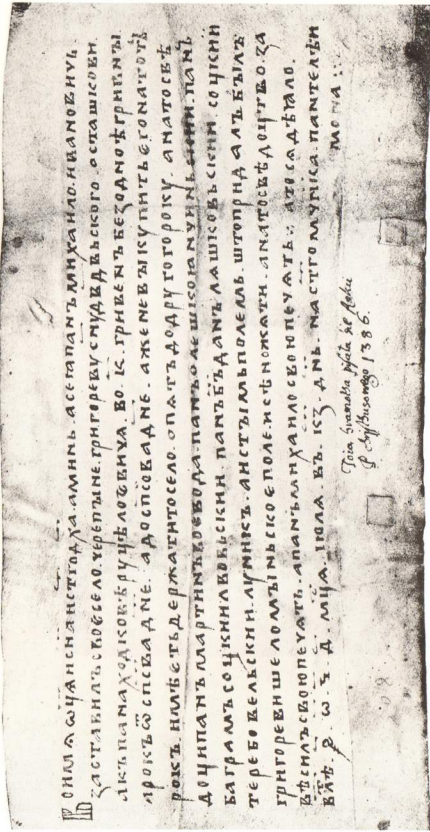 Во имѧ ѡц҃а и сн҃а и ст҃го дх҃а. аминь. а се ꙗ панъ михаило. ивановичь
заставилъ своѥ село. черепыне. григореву осташкови.
во. к. гривенъ безодноѣ гривны
рокъ ѿ сп҃совадне. а до сп҃совадне. аже не выкупить его на тотъ
рокъ. имѣѥть держати то село. опѧть до другого року. а на то свѣ
доци панъ мартинъ воевода. панъ олешко панъ
баграмъ соцкии лвовьскии. панъ бъданъ лашковьскии. соцкии
теребовельскии. полемь. што придалъ былъ
григореви шеломыньское поле. и сѣножати. а на то свѣдоцтво. за
вѣсилъ свою печать. а панъ михаило свою печать. а то сѧ дѣꙗло.
в лѣ҃. ѡ. ч. д. мц҃а. июлѧ. въ. к҃з. дн҃ь. на ст҃го мч҃нка. пантелѣи
мона
1386.